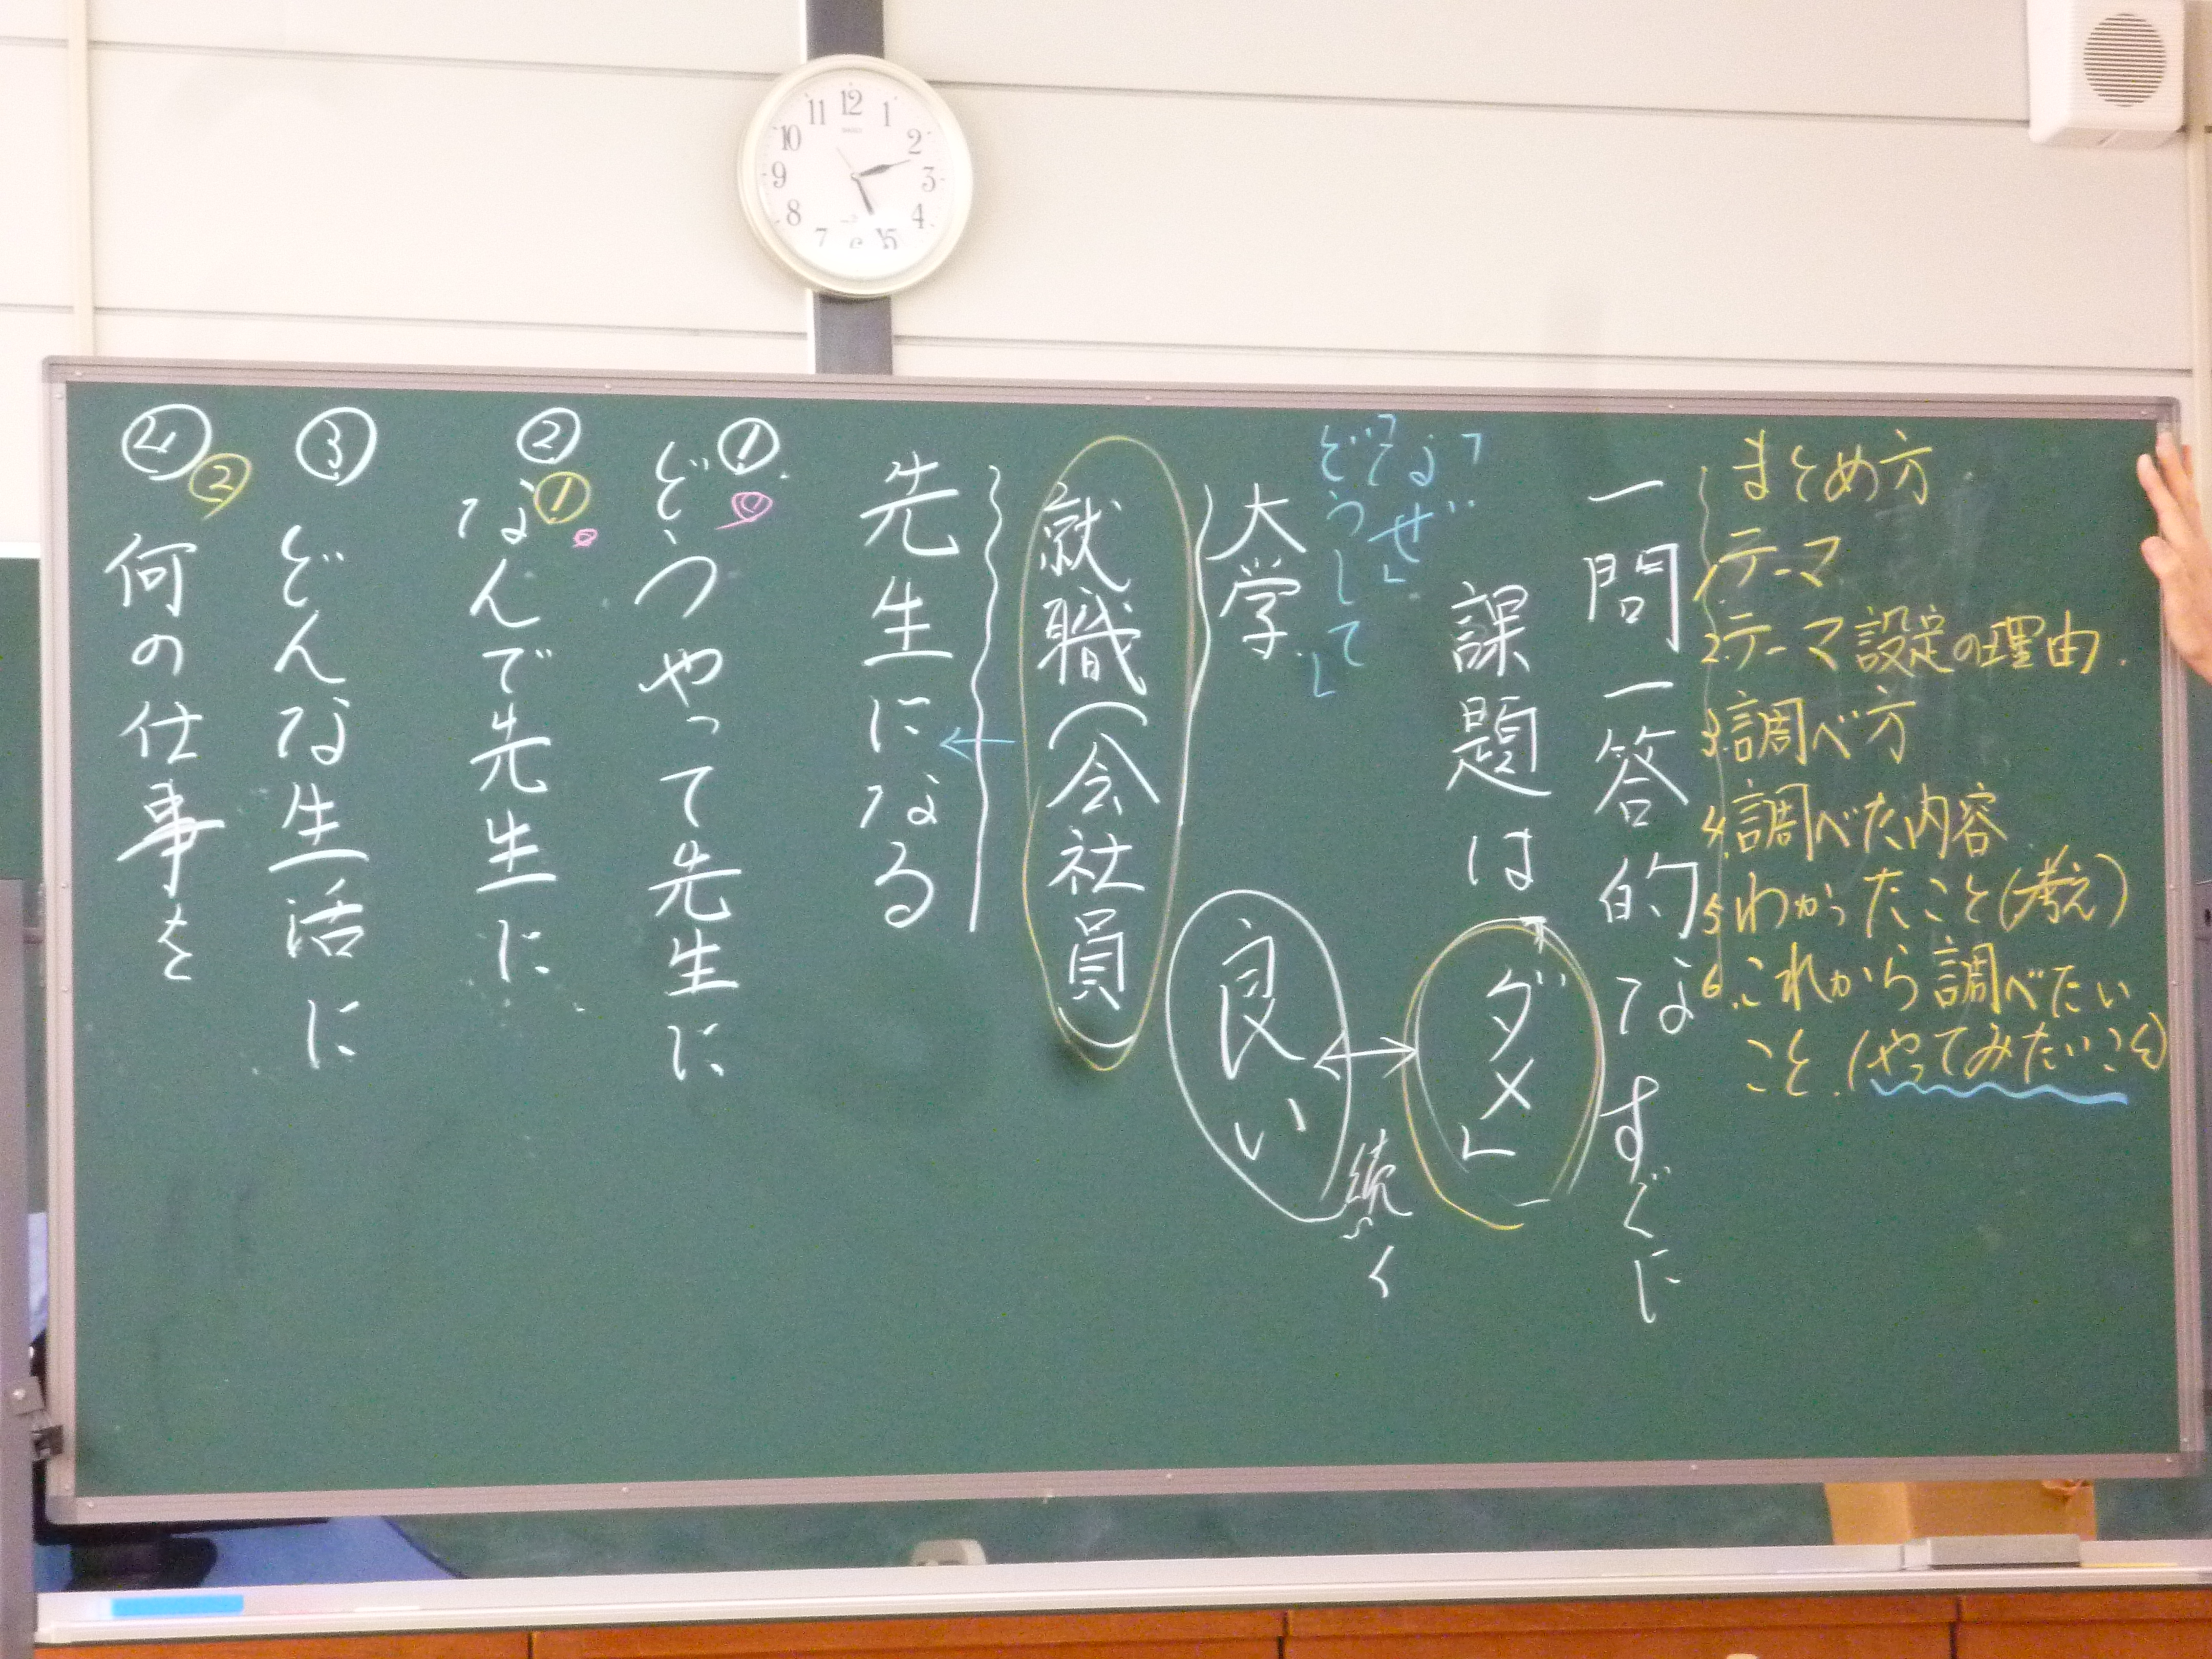 まとめ方
1.テーマ
2.テーマ設定の理由.
3.調べ方
4.調べた内容
5.わかったこと(考え)
6.これから調べたい
こと.(やってみたいこと)
一問一答的なすぐに
課題はダメ
「なぜ」
「どうして」
続く
大学
良い
就職(会社員)
先生になる
①
どうやって先生に
② ①
なんで先生に
③
どんな生活に
④ ②
何の仕事を
12
1
2
3
4
5
6
7
8
9
10
11